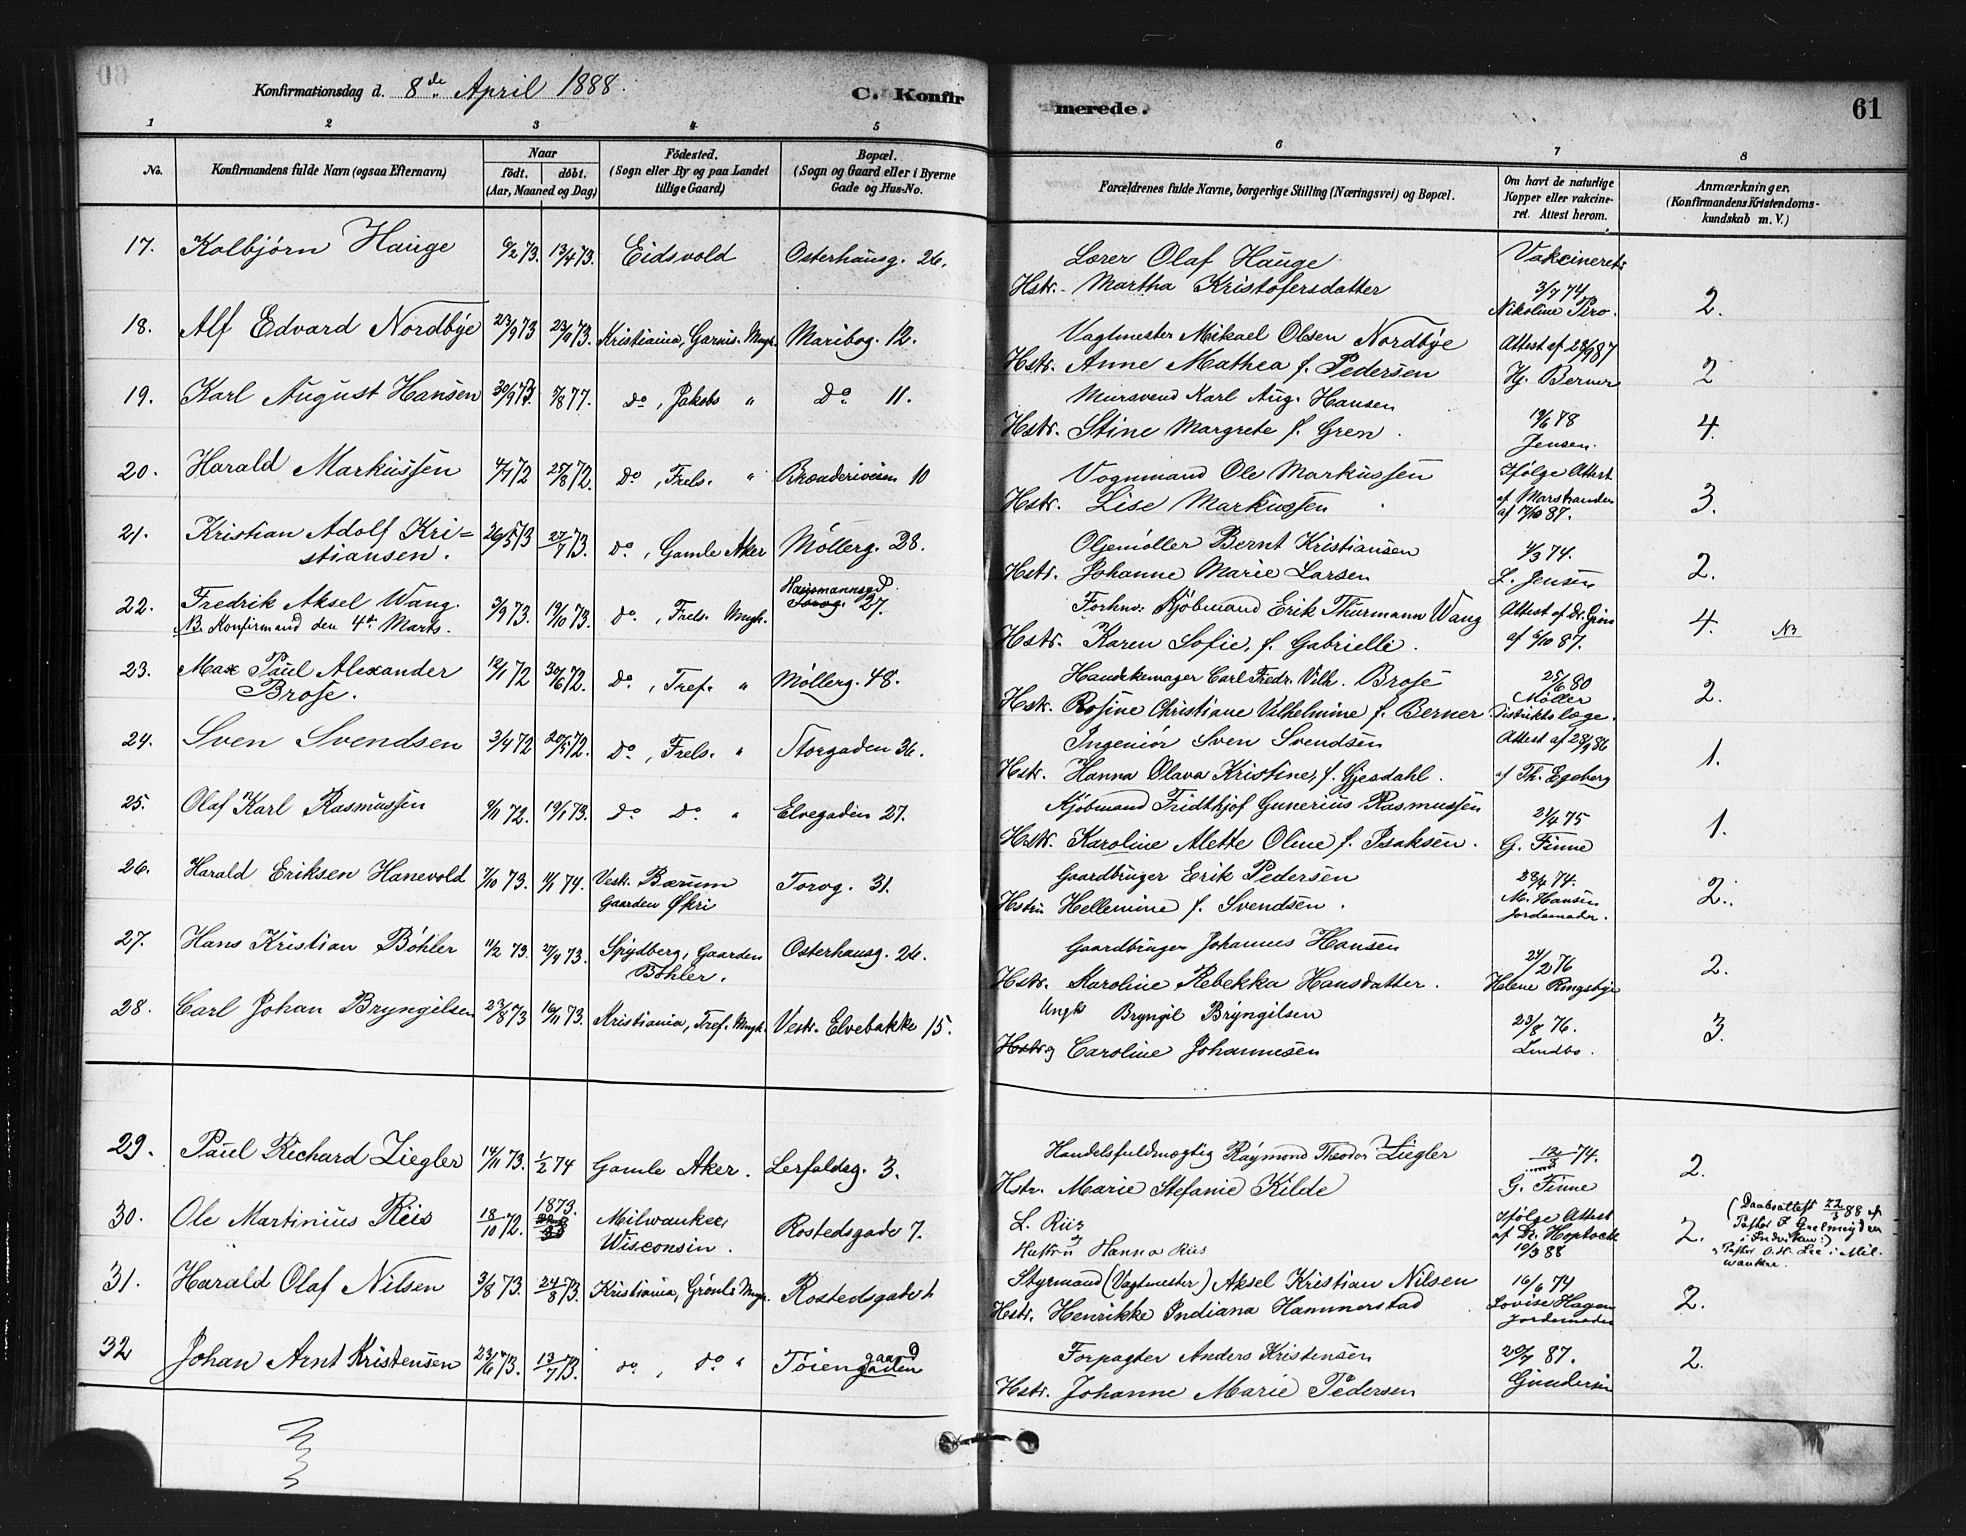 Konfirmationsdag d. 8de April 1888.
C. Konfir
merede.
61
1 2 3 4 5 6 7 8
No.
Konfirmandens fulde Navn (ogsaa Efternavn)
Naar
født. døbt.
(Aar, Maaned og Dag)
Fødested.
(Sogn eller By og paa Landet
tillige Gaard)
Bopæl.
(Sogn og Gaard eller i Byerne
Gade og Hus-No.
Forældrenes fulde Navne, borgerlige Stilling (Næringsvei) og Bopæl.
Om havt de naturlige
Kopper eller vakcine-
ret. Attest herom.
Anmærkninger.
(Konfirmandens Kristendoms-
kundskab m. V.)
17. Kolbjørn Hauge 6/2 73. 13/4 73. Eidsvold Osterhausg. 26.
Lærer Olaf Hauge
Hstr. Martha Kristofersdatter
Vakcineret:
3/7 74
Nikoline
2.
18. Alf Edvard Nordbye 23/9 73 23/11 73. Kristiania, Garnis. Mngh. Maribog. 12.
Vagtmester Mikael Olsen Nordbye
Hstr. Anne Mathea f. Pedersen
Attest af 28/9 87
Hj. Berner
2
19. Karl August Hansen 30/9 73. 7/8 77. do, Jakobs " Do 11.
Mursvend Karl Aug. Hansen
Hstr. Stine Margrete f. Gren.
19/6 78
Jensen.
4.
20. Harald Markussen 4/7 72 25/8 72. Do, Frels. " Brænderiveien 10
Vognmand Ole Markussen
Hstr. Lise Markussen
Ifølge Attest
af Marstrander
af 7/10 87.
3.
21. Kristian Adolf Kri=
stiansen.
26/5 73 27/7 73. Do, Gamle Aker Møllerg. 28.
Oljemøller Bernt Kristiansen
Hstr. Johanne Marie Larsen
4/3 74.
L. Jensen
2.
22. Fredrik Aksel Wang.
NB. Konfirmand den 4de Marts.
3/9 73. 19/10 73. Do, Frels. Mngh. Hausmannsgd. 27.
Forhnv. Kjøbmand Erik Thurmann Wang
Hstr. Karen Sofie, f. Gabrielle.
Attest af Dr.
af 6/10 87.
4. NB
23. Max Paul Alexander
Brose.
12/1 72 30/6 72. Do, Tref. " Møllerg. 48.
Handskemager Carl Fredr. Vilh. Brose
Hstr. Rosine Christiane Vilhelmine f. Berner
25/6 80
Møller
Distriktslæge.
2.
24. Sven Svendsen 3/4 72 20/5 72. Do, Frels. " Storgaden 36.
Ingeniør Sven Svendsen
Hstr. Hanna Olava Kristine, f. Gjesdahl.
Attest af 28/9 86
af Th. Egeberg
1.
25. Olaf Karl Rasmussen 9/11 72. 19/1 73. do Do " Elvegaden 27.
Kjøbmand Fridthjof Gunerius Rasmussen
Hstr. Karoline Alette Oline f. Isaksen.
21/4 75
G. Finne
1.
26. Harald Eriksen Hanevold 7/10 73. 11/1 74. Vestr. Bærum
Gaarden Økri
Torvg. 31.
Gaardbruger Erik Pedersen
Hstru Hellemine f. Svendsen.
28/4 74.
M. Hansen
Jordemoder.
2.
27. Hans Kristian Böhler 11/2 73. 27/4 73. Spydberg, Gaarden
Böhler.
Osterhausg. 26.
Gaardbruger Johannes Hansen
Hstr. Karoline Rebekka Hansdatter.
24/2 76
Helene Ringsbye
2.
28. Carl Johan Bryngilsen 23/8 73 16/11 73. Kristiania, Tref. Mngh. Vestr. Elvebakke 15.
Ungk Bryngil Bryngilsen
Hstr. og Caroline Johannesen
23/8 76.
Lindbo.
3.
29. Paul Richard Ziegler 14/11 73. 1/2 74 Gamle Aker. Lerfaldsg. 3.
Handelsfuldmægtig Raymond Theodor Ziegler
Hstr. Marie Stefanie Kilde
12/8 74.
G. Finne
2.
30. Ole Martinius Riis 18/10 72. 1873. Milwaukee,
Wisconsin.
Rostedsgade 7.
L. Riis
og
Hustru Hanna Riis
Ifølge Attest
af Dr. Hoptock
10/3 88
2.
(Daabsattest 22/3 88 af
Pastor
Pastor O. H. Lee i Mil-
waukee.
31. Harald Olaf Nilsen 3/8 73. 24/8 73. Kristiania, Grønl. Mngh. Rostedsgade
Styrmand (Vagtmester) Aksel Kristian Nilsen
Hstr. Henrikke Indiana Hammerstad
16/6 74
Lovise Hagen
Jordemoder
2.
32 Johan Arnt Kristensen 23/6 73. 13/7 73. do, do " Tøiengaard
Forpagter Anders Kristensen
Hstr. Johanne Marie Pedersen
20/7 87.
Gundersen
2.